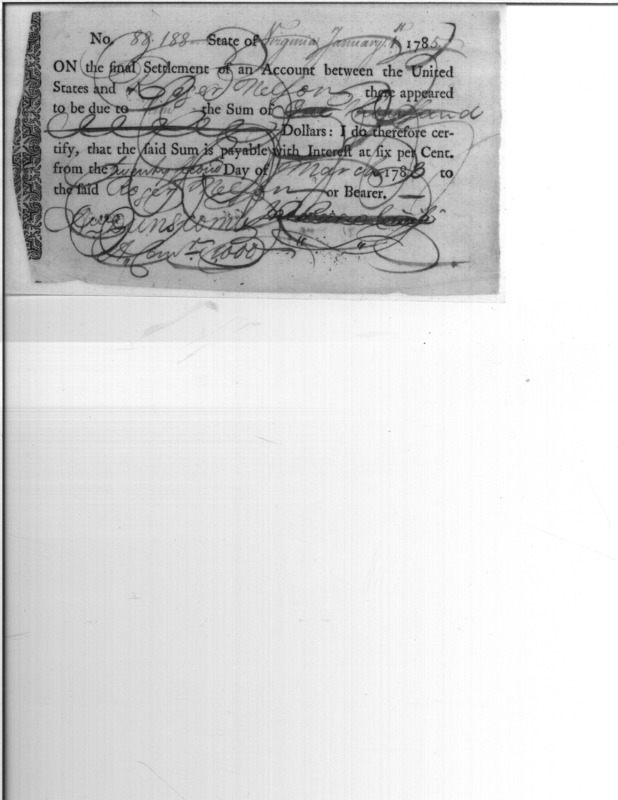 No. 88.188 State of Virginia January 1st 1785
ON the final Settlement of an Account between the United
States and Roger Nelson there appeared
to be due to the Sum of One Thousand
Dollars: I do therefore cer-
tify, that the said Sum is payable with Interest at six per Cent.
from the twenty second Day of March 1783 to
the said Roger Nelson or Bearer.
Dunscomb
1000